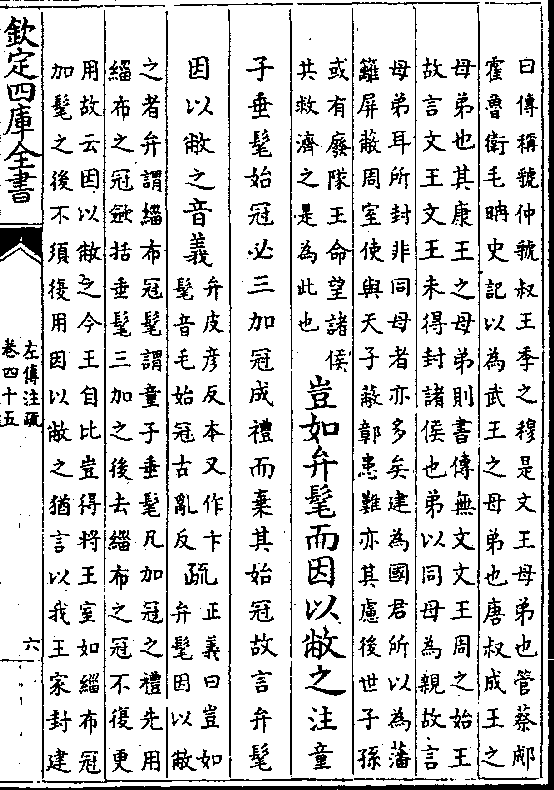 曰傳稱虢仲虢叔王季之穆是文王母弟也管蔡郕
霍魯衛毛聃史記以為武王之母弟也唐叔成王之
母弟也其康王之母弟則書傳無文文王周之始王
故言文王文王未得封諸侯也弟以同母為親故言
母弟耳所封非同母者亦多矣建為國君所以為藩
籬屏蔽周室使與天子蔽鄣患難亦其慮後世子孫
或有廢隊王命望諸侯
共救濟之是為此也
豈如弁髦而因以敝之注童
子垂髦始冠必三加冠成禮而棄其始冠故言弁髦
因以敝之音義
弁皮彥反本又作卞
髦音毛始冠古亂反
疏
正義曰豈如
弁髦因以敝
之者弁謂緇布冠髦謂童子垂髦凡加冠之禮先用
緇布之冠斂括垂髦三加之後去緇布之冠不復更
用故云因以敝之今王自比豈得將王室如緇布冠
加髦之後不須復用因以敝之猶言以我王家封建
欽定四庫全書
左傳注疏
卷四十五
六